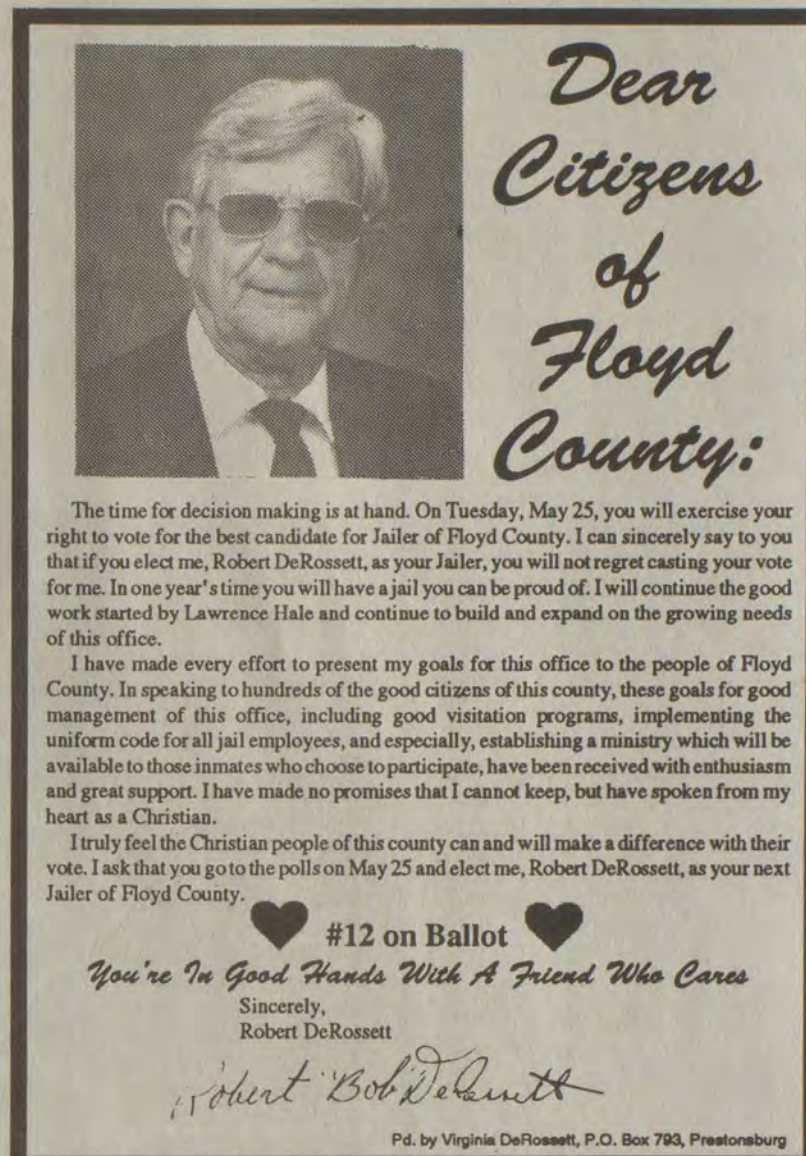 Dear
Citizens
of
Floyd
County:
The time for decision making is at hand. On Tuesday, May 25, you will exercise your
right to vote for the best candidate for Jailer of Floyd County. I can sincerely say to you
that if you elect me, Robert DeRossett, as your Jailer, you will not regret casting your vote
for me. In one year's time you will have a jail you can be proud of. I will continue the good
work started by Lawrence Hale and continue to build and expand on the growing needs
of this office.
I have made every effort to present my goals for this office to the people of Floyd
County. In speaking to hundreds of the good citizens of this county, these goals for good
management of this office, including good visitation programs, implementing the
uniform code for all jail employees, and especially, establishing a ministry which will be
available to those inmates who choose to participate, have been received with enthusiasm
and great support. I have made no promises that I cannot keep, but have spoken from my
heart as a Christian.
I truly feel the Christian people of this county can and will make a difference with their
vote. I ask that you go to the polls on May 25 and elect me, Robert DeRossett, as your next
Jailer of Floyd County.
#12 on Ballot
You're In Good Hands With A Friend Who Cares
Sincerely,
Robert DeRossett
Robert "Bob" DeRossett
Pd. by Virginia DeRossett, P.O. Box 793, Prestonsburg